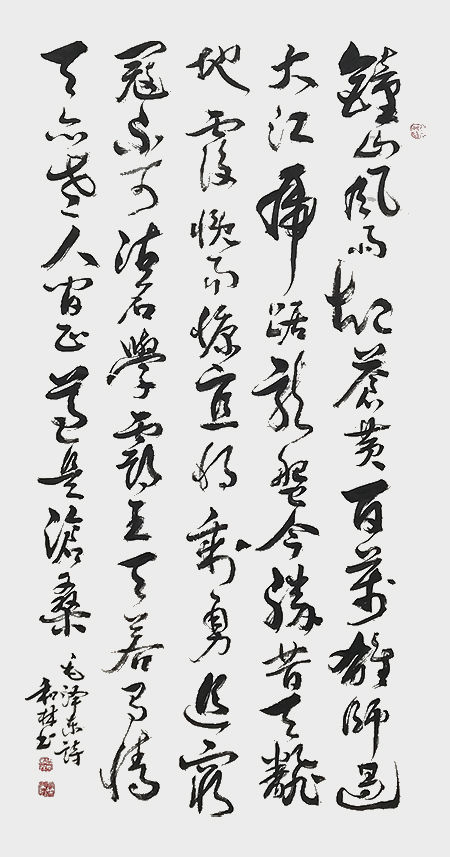 鐘山风雨起蒼黄百萬雄師過
大江虎踞龙盤今勝昔天翻
地覆慨而慷宜将剩勇追窮
寇不可沽名學霸王天若有情
天亦老人间正道是滄桑
毛泽东詩
和林书